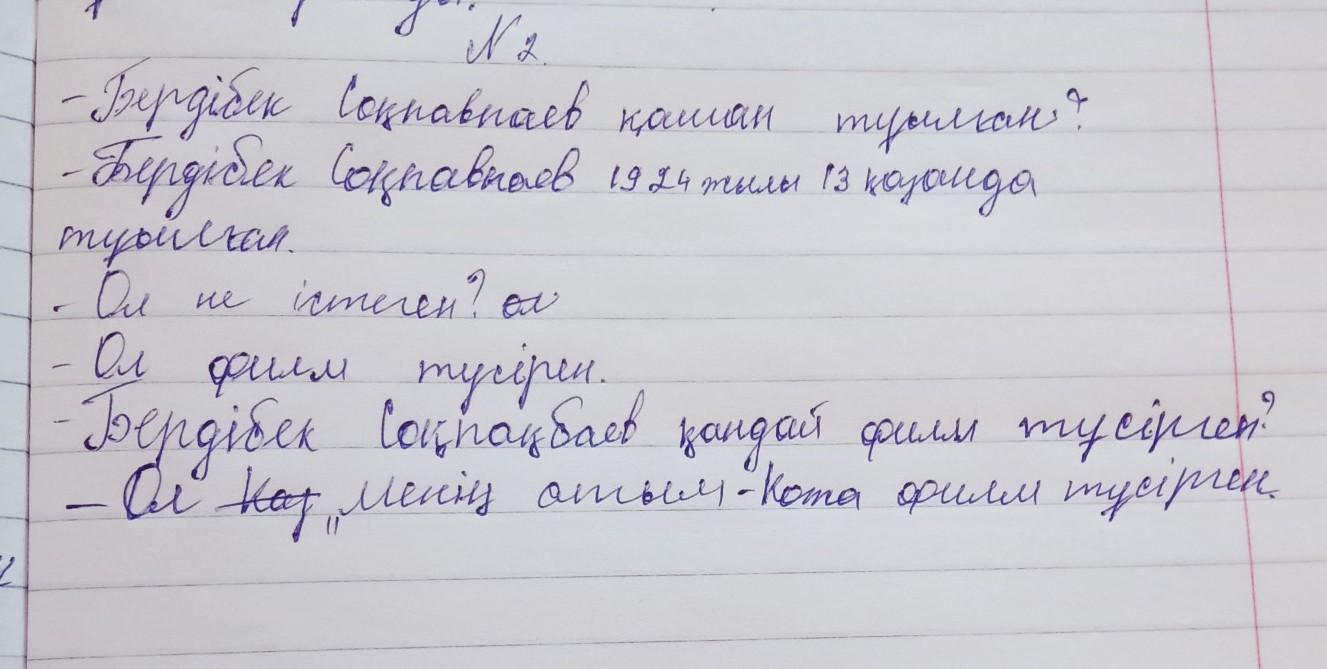 N 2.
- Бердібек Соқпавпаев қашан туылған?
- Бердібек Соқпавпаев 1924 жылы 13 қазанда
туылған.
- Ол не істеген? ол
- Ол филм түсірен.
- Бердібек Соқпақбаев қандай филм түсірген?
- Ол Каз „Менің атым-Кожа филм түсірген.